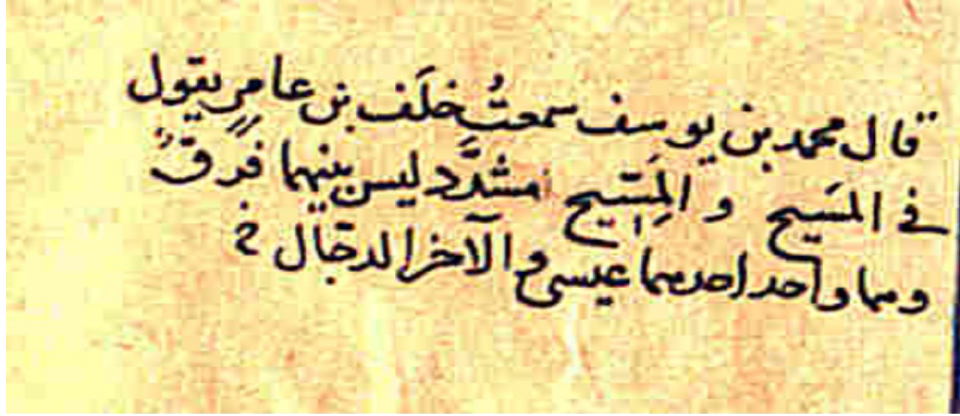 "قال محمد بن يوسف سمعتُ خلَف بن عامرٍ يقول
في المَسيح و المِسِّيح مشدَّد ليس بينهما فرقٌ
وهما واحد احدهما عيسى والآخر الدجّال